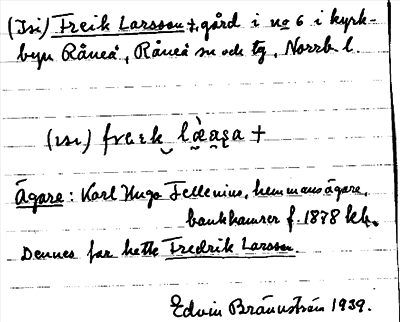 (Isi) Freik Larsson +, gård i no 6 i kyrk-
byn Råneå, Råneå sn och tg, Norrb l.
(ısı) freık
Ägare: Karl Hugo Fellenius, hemmansägare,
f. 1878
Dennes far hette Fredrik Larsson.
Edvin Brännström 1939.